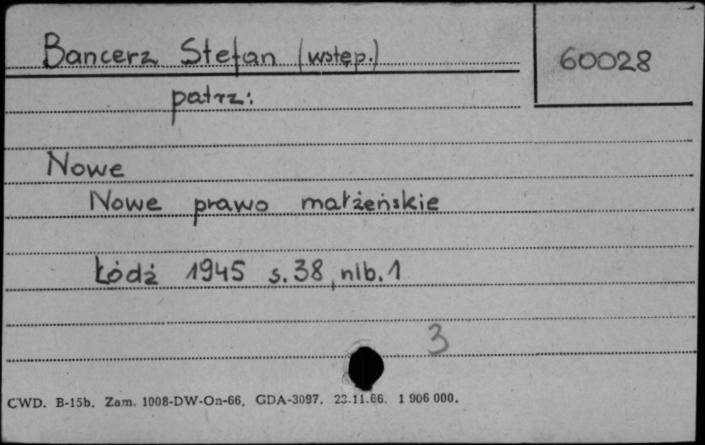 Bancerz Stefan (wstęp.)
60028
patrz:
Nowe
Nowe prawo małżeńskie
Łódź 1945 s. 38, nlb. 1
3
CWD. B-15b. Zam. 1008-DW-On-66. GDA-3097. 23.11.66. 1 906 000.